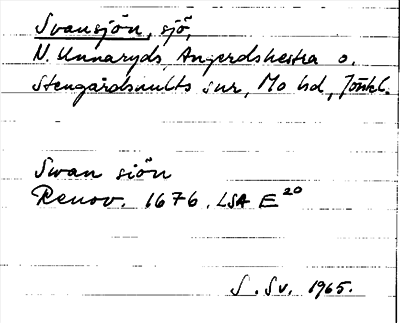 Svansjön, sjö,
N. Unnaryds, Angerdshestra o.
Stengårdshults snr, Mo hd, Jönkl.
Swan siön
Renov. 1676. LSA E20
S. Sv. 1965.